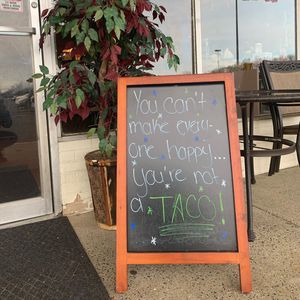 You can't
make every
one happy...
you're not
a TACO!